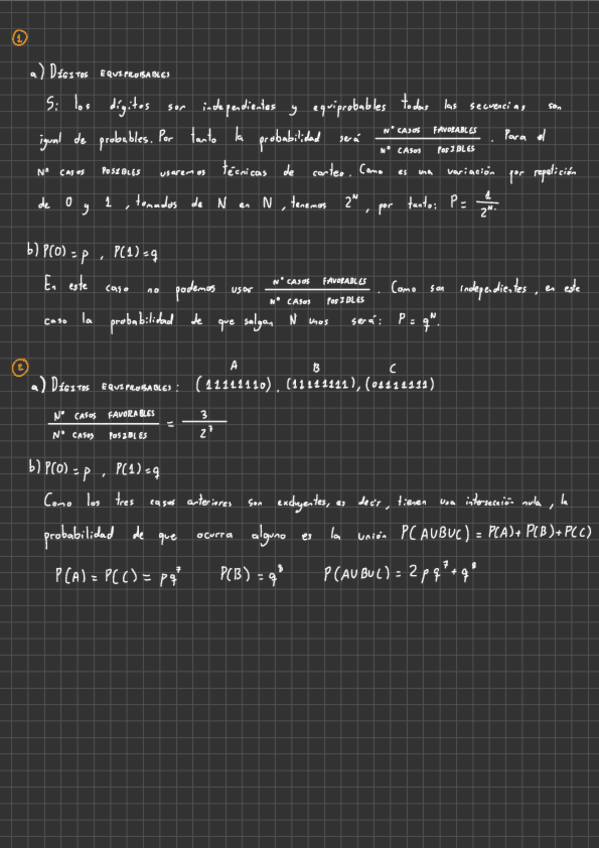 1
a) DÍGITOS EQUIPROBABLES
Si los dígitos son independientes y equiprobables todas las secuencias son
igual de probables. Por tanto la probabilidad será Nº CASOS FAVORABLES / Nº CASOS POSIBLES. Para el
Nº CASOS POSIBLES usaremos técnicas de conteo. Como es una variación por repetición
de 0 y 1, tomados de N en N, tenemos 2^N, por tanto: P = 1/2^N.
b) P(0) = p , P(1) = q
En este caso no podemos usar Nº CASOS FAVORABLES / Nº CASOS POSIBLES. Como son independientes, en este
caso la probabilidad de que salgan N unos será: P = q^N.
2
A B C
a) DÍGITOS EQUIPROBABLES: (11111110), (11111111), (01111111)
Nº CASOS FAVORABLES / Nº CASOS POSIBLES = 3 / 2^7
b) P(0) = p , P(1) = q
Como los tres casos anteriores son excluyentes, es decir, tienen una intersección nula, la
probabilidad de que ocurra alguno es la unión P(AUBUC) = P(A) + P(B) + P(C)
P(A) = P(C) = pq^7 P(B) = q^8 P(AUBUC) = 2pq^7 + q^8